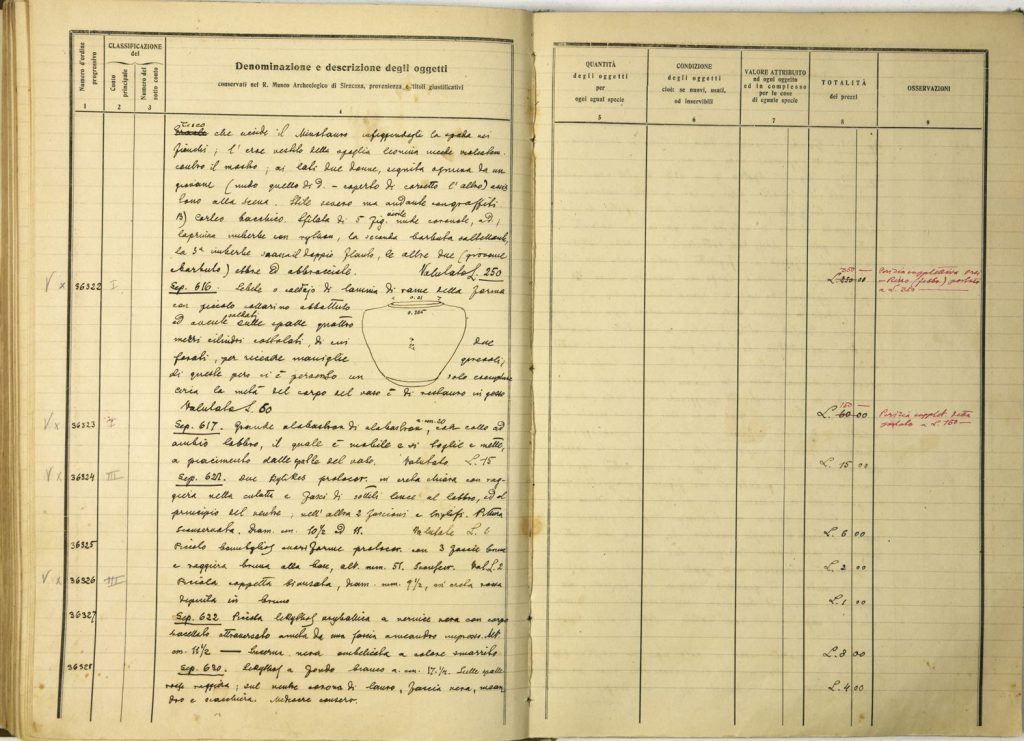 Numero d'ordine progressivo
CLASSIFICAZIONE del
Conto principale
Numero del sotto conto
Denominazione e descrizione degli oggetti
conservati nel R. Museo Archeologico di Siracusa, provenienza e titoli giustificativi
1 2 3 4
Teseo
che uccide il Minotauro infiggendogli la spada nei
fianchi; l'eroe vestito della spoglia leonina
contro il mostro; ai lati due donne, seguita ognuna da un
giovane (nudo quello di d. - coperto di corsetto l'altro)
alla scena. Stile severo ma andante con graffiti.
B) Corteo bacchico. Sfilata di 5 fig. nude coronate, ad
imberbe con rython, la seconda barbuta
la 3ª imberbe doppio flauto, le altre due (giovane
barbuto) ebbre ed abbracciate. Valutato L. 250
V x 36322 I. Sep. 616. Lebete o caldajo di lamina di rame della forma
con piccolo collarino abbattuto
0.265
ed avente saldati sulle spalle quattro
mezzi cilindri costolati, di cui due
forati, per ricevere maniglie girevoli;
di queste però vi è un solo esemplare
circa la metà del corpo del vaso è di restauro in gesso.
Valutato L. 60
V x 36323 I Sep. 617. Grande alabastron di alabastro, a. cm. 20, collo ad
ampio labbro, il quale è mobile e si toglie e mette,
a piacimento dalle spalle del vaso. Valutato L. 15
V x 36324 III Sep. 621. Due kylikes protocor. in creta chiara con
nella culatta e fasci di sottili linee al labbro, ed al
principio del ventre; nell'altra 2 fascioni e triglifi. Pittura
sconservata. Diam. cm. 10½ ed 11. Valutate L. 6
36325 Piccolo protocor. con 3 fascie brune
e raggiera bruna alla base, alt. mm. 51. Val L. 2
V x 36326 III Piccola coppetta biansata, diam. mm. 9½, in creta rossa
dipinta in bruno
36327 Sep. 622. Piccola lekythos aryballica a vernice nera con corpo
baccellato attraversato a metà da una fascia a meandro impresso. Alt.
cm. 11½ — Lucerna nera ombelicata a colore smarrito
36328 Sep. 630. Lekythos a fondo bianco a. cm. 17.½. Sulle spalle
raggiera; sul ventre corona di lauro, fascia nera, mean
dro e scacchiera. Mediocre conserv.
QUANTITÀ degli oggetti per ogni egual specie
CONDIZIONE degli oggetti cioè: se nuovi, usati, od inservibili
VALORE ATTRIBUITO ad ogni oggetto ed in complesso per le cose di eguale specie
TOTALITÀ dei prezzi
OSSERVAZIONI
5 6 7 8 9
350 —
L. 250 00 Perizia suppletiva
portato
150 —
L. 60 00 Perizia supplet. detta
portato a L. 150 —
L. 15 00
L. 6 00
L. 2 00
L. 1 00
L. 3 00
L. 4 00